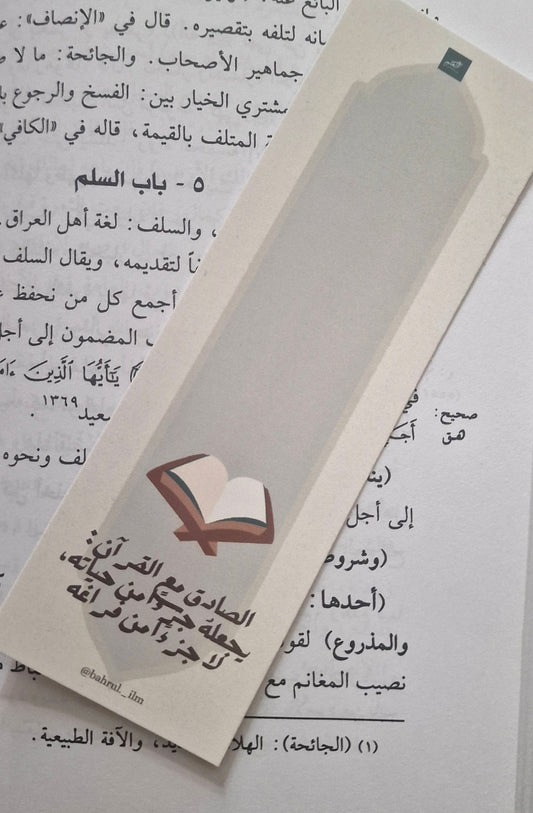 البائع عنه،
لتلفه بتقصيره. قال في «الإنصاف»:
جماهير الأصحاب. والجائحة: ما لا
الخيار بين: الفسخ والرجوع
المتلف بالقيمة، قاله في «الكافي»
٥ - باب السلم
، والسلف: لغة أهل العراق.
لتقديمه، ويقال السلف
أجمع كل من نحفظ
المضمون إلى أجل
يَٰٓأَيُّهَا ٱلَّذِينَ
١٣٦٩ .
صحيح:
هق
ونحوه
إلى أجل
(أحدها:
والمذروع)
نصيب المغانم مع
(١) (الجائحة):
، والآفة الطبيعية.
الصادق مع القرآن:
يجعله جزءًا من حياته،
لا جزءًا من فراغه
@bahrul._ilm